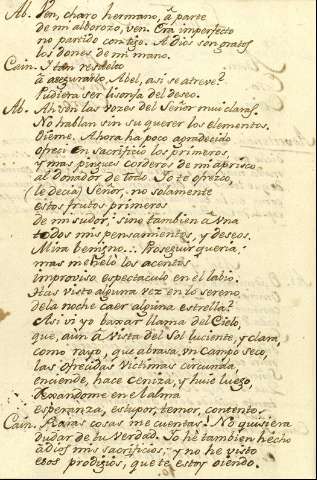 Ab. Ven, charo hermano, à parte
de mi alborozo, ven. Era imperfecto
no partido contigo. A Dios son gratos
los dones de mi mano.
Cain. I tan resuelto
à asegurarlo Abel, asi se atreve?
Pudiera ser lisonja del deseo.
Ab. Ah son las vozes del Señor mui claras.
No hablan sin su querer los elementos.
Oieme. Ahora ha poco agradecido
ofreci en sacrificio los primeros
y mas pingues corderos de mi aprisco
al Donador de todo. Io te ofrezco,
(le decia) Señor, no solamente
estos frutos primeros
de mi sudor; sino tambien à una
todos mis pensamientos, y deseos.
Mira benigno... Proseguir queria;
mas me helò los acentos
improviso espectaculo en el labio.
Has visto alguna vez en lo sereno
de la noche caer alguna estrella?
Asi vi yo baxar llama del Cielo,
que, aun à vista del Sol luciente, y clara,
como rayo, que abrasa un campo seco,
las ofrecidas victimas circunda,
enciende, hace ceniza, y huiò luego,
dexandome en el alma
esperanza, estupor, temor, contento.
Cain. Raras cosas me cuentas! No quisiera
dudar de tu verdad. Io he tambien hecho
à Dios mis sacrificios; y no he visto
esos prodigios, que te estoy oiendo.